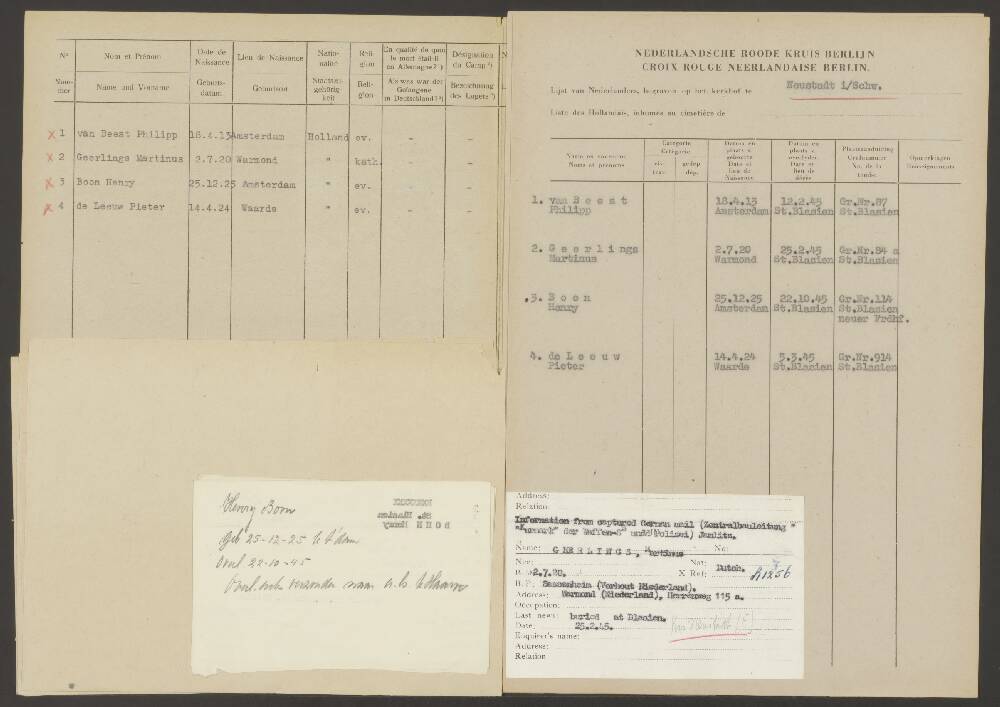 N° Nom et Prénom Date de Naissance Lieu de Naissance Natio-nalité Reli-gion En qualité de quoi le mort était-il en Allemagne? Désignation du Camp
Num-mer Name und Vorname Geburts-datum Geburtsort Staatsan-gehörig-keit Reli-gion Als was war der Gefangene in Deutschland? Bezeichnung des Lagers
x 1 van Beest Philipp 18.4.13 Amsterdam Holland ev. - -
x 2 Geerlings Martinus 2.7.20 Warmond " kath. - -
x 3 Boon Henry 25.12.25 Amsterdam " ev. - -
x 4 de Leeuw Pieter 14.4.24 Waarde " ev. - -
NEDERLANDSCHE ROODE KRUIS BERLIJN
CROIX ROUGE NEERLANDAISE BERLIN.
Lijst van Nederlanders, begraven op het kerkhof te Neustadt i/Schw.
Liste des Hollandais, inhumés au cimetière de
Naam en voornaam
Noms et prénoms
Categorie
Catégorie
civ.
trav.
gedep
dép.
Datum en
plaats v.
geboorte
Date et
lieu de
Naissance
Datum en
plaats v.
overlijden
Date et
lieu de
décès
Plaatsaanduiding
Grafnummer
No. de la
tombe
Opmerkingen
Renseignements
1. van B e e s t 18.4.13 12.2.45 Gr.Nr.87
Philipp Amsterdam St.Blasien St.Blasien
2. G e e r l i n g s 2.7.20 25.2.45 Gr.Nr.84 a
Martinus Warmond St.Blasien St.Blasien
3. B o o n 25.12.25 22.10.45 Gr.Nr.114
Henry Amsterdam St.Blasien St.Blasien
neuer Frdhf.
4. de L e e u w 14.4.24 5.3.45 Gr.Nr.914
Pieter Waarde St.Blasien St.Blasien
Henry Boon
geb 25-12-25 te A'dam
Overl 22-10-45
St. Blasien
BOON Henry
Address:
Relation
Information from captured German mail (Zentralbauleitung "
der Waffen-S" und Polizei) Jamlitz.
Name: GEERLINGS, Martinus No:
Nee: Nat: Dutch.
B. D: 2.7.20. X Ref:
B. P. Sassenheim (Vorhout Niederland).
Address: Warmond (Niederland), Herrenweg 115 a.
Occupation:
Last news: buried at Blasien.
Date: 25.2.45.
Enquirer's name:
Address:
Relation